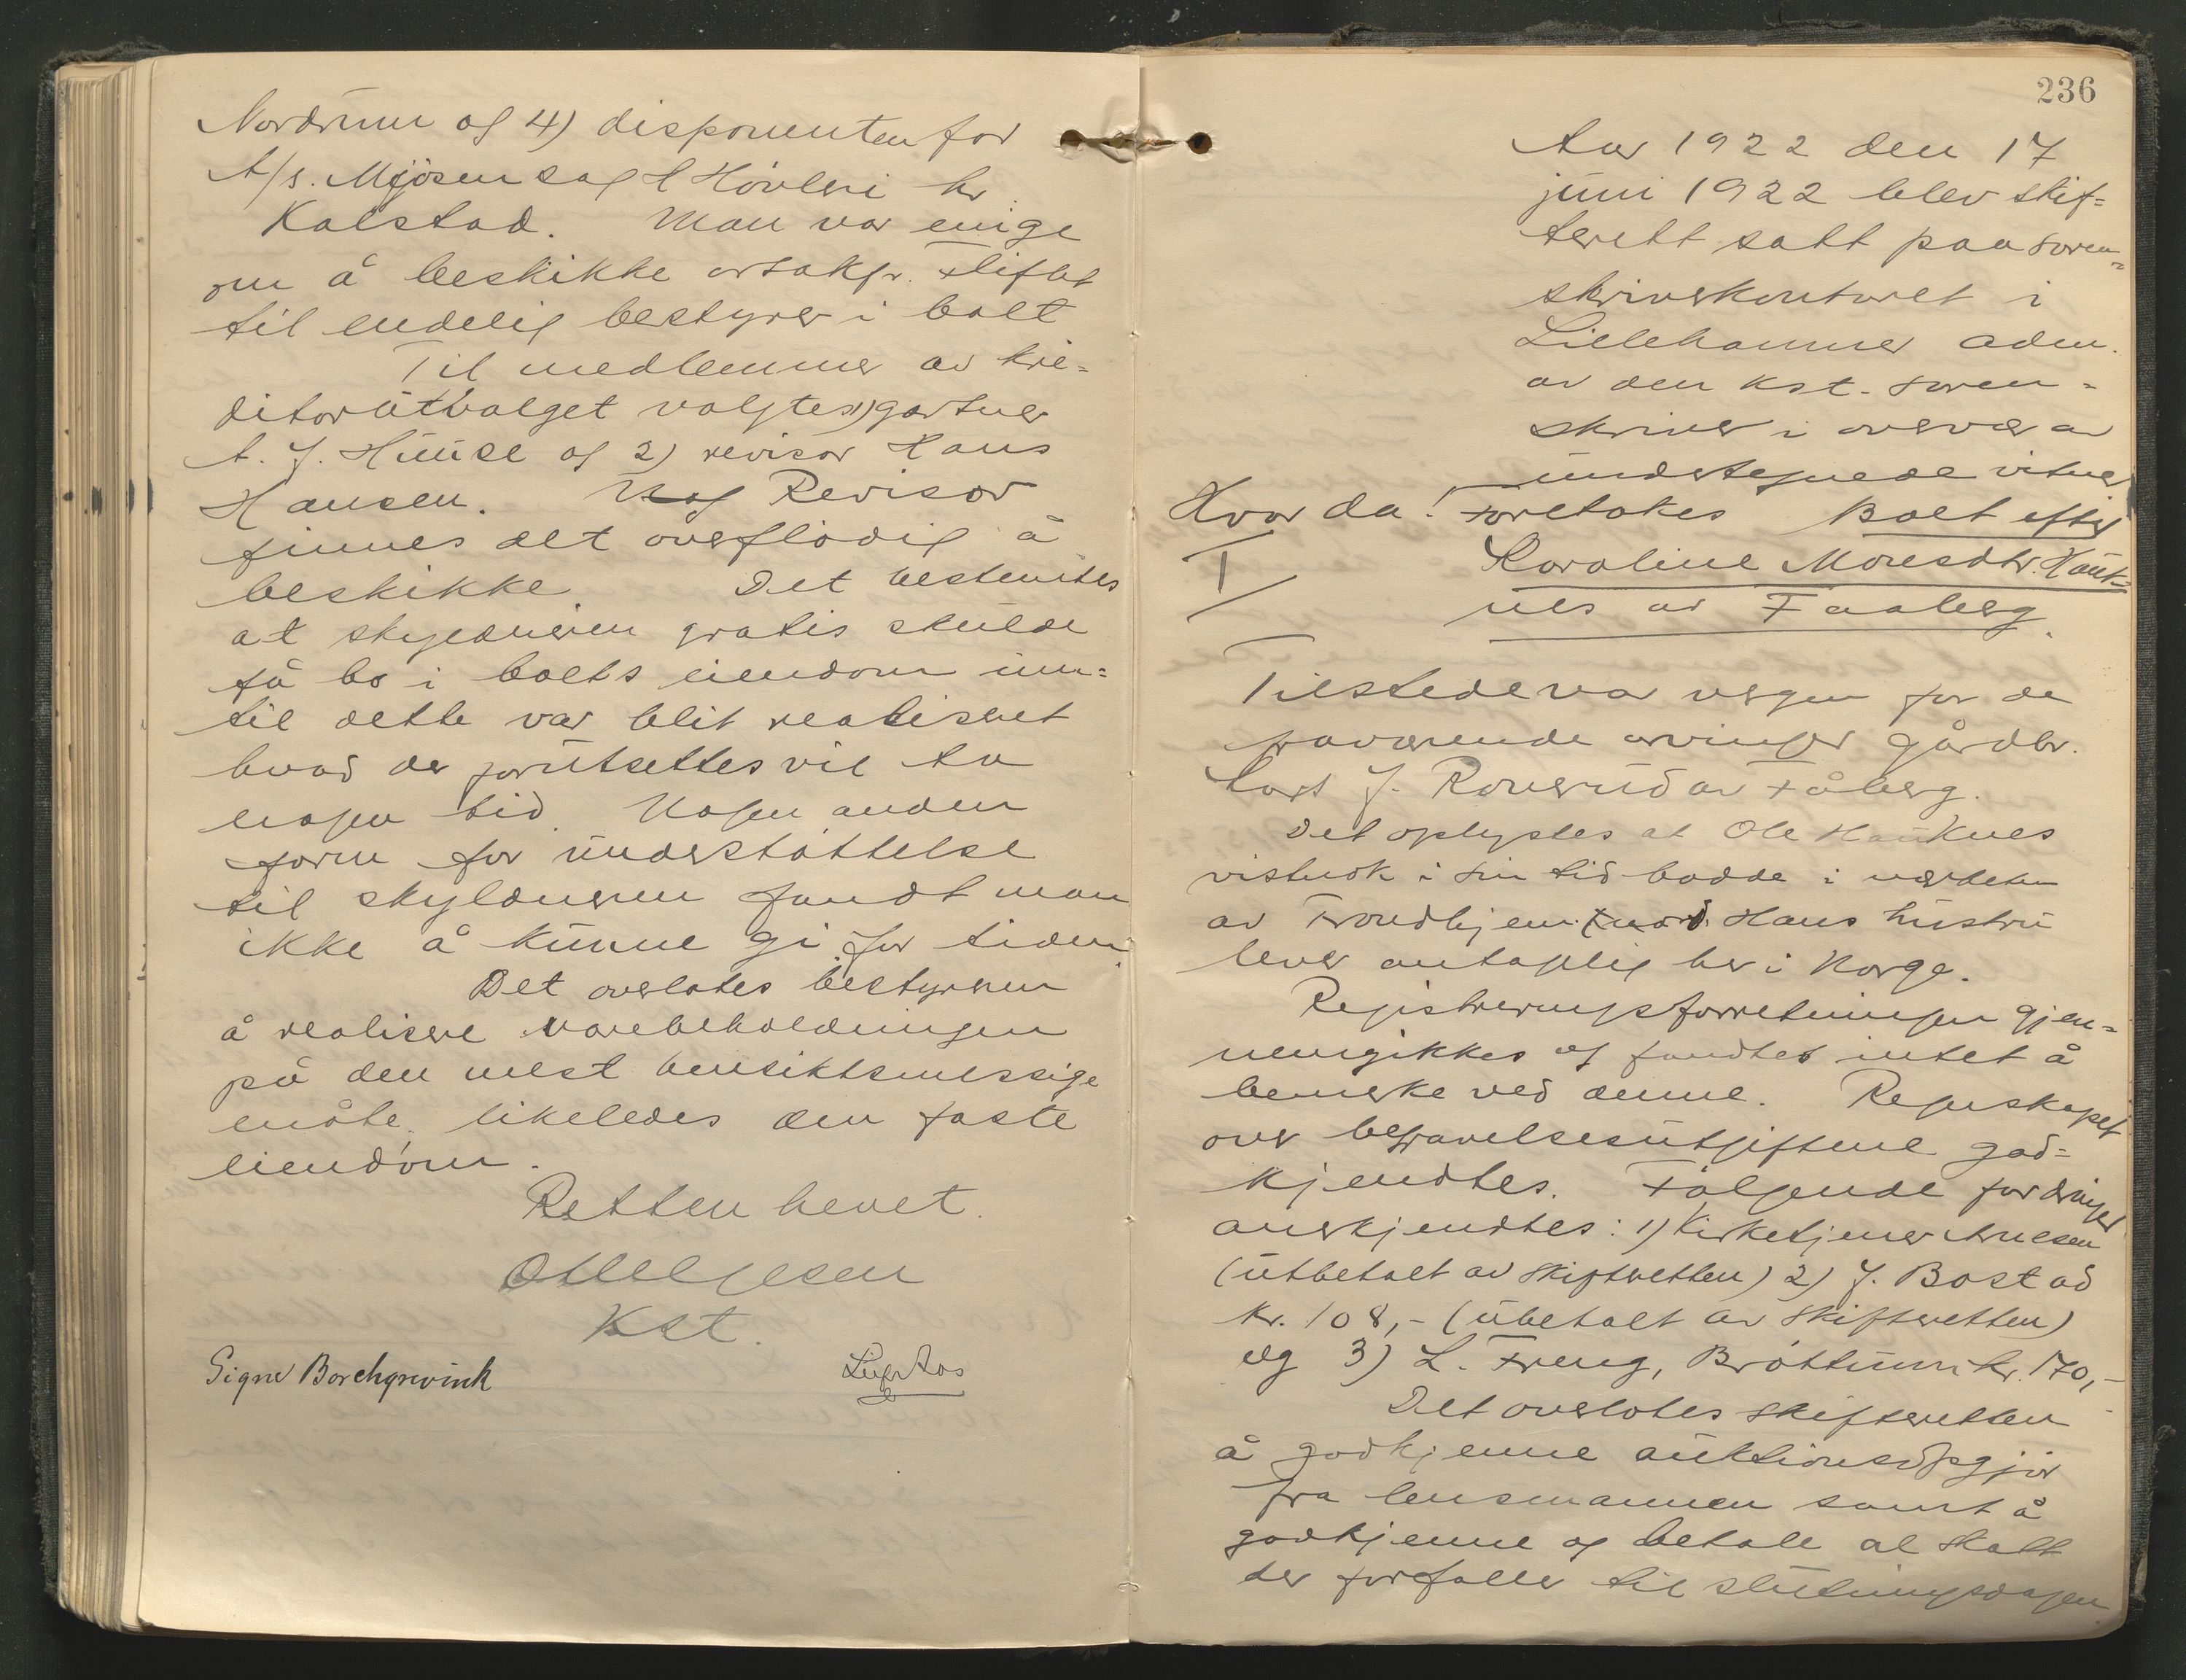 Nordrum og 4) disponenten for
A/s. Mjøsen sag & Høvleri hr.
Kalstad. Man var enige
om å beskikke o.r.sakf. Fliflet
til endelig bestyrer i boet
Til medlemmer av kre-
ditorutvalget valgtes 1) gartner
A. J. Huuse og 2) revisor Hans
Hansen. Nog Revisor
finnes det overflødig å
beskikke. Det bestemtes
at skyldneren gratis skulde
få bo i boets eiendom inn-
til dette var blit realisert
hvad der forutsettes vil ta
nogen tid. Nogen anden
form for understøttelse
til skyldneren fandt man
ikke å kunne gi for tiden.
Det overlates bestyreren
å realisere varebeholdningen
på den mest hensiktsmessige
måte, likeledes den faste
eiendom.
Retten hevet.
O Helgesen
Kst.
Signe Borchgrevink Leif Aas
236
Aar 1922 den 17
juni 1922 blev skif-
terett satt paa soren-
skriverkontoret i
Lillehammer adm.
av den kst. soren-
skriver i overvær av
undertegnede vitner
Hvorda! Foretokes Boet efter
I Karoline Monsdtr. Hauk-
nes av Faaberg.
Tilstede var vergen for de
fraværende arvinger gårdbr.
Lars J. Roverud av Fåberg.
Det oplystes at Ole Hauknes
vistnok i sin tid bodde i nærheten
av Trondhjem. Hans hustru
lever antagelig her i Norge.
Registreringsforretningen gjen-
nemgikkes og fandtes intet å
bemerke ved denne. Regnskapet
over begravelsesutgiftene god-
kjendtes. Følgende fordringer
anerkjendtes: 1) Kirketjener Arnesen
(utbetalt av skifteretten) 2) J. Bostad
kr. 108,- (ubetalt av skifteretten)
og 3) L. Freng, Brøttum kr. 170,-
Det overlotes skifteretten
å godkjenne auktionsopgjør
fra lensmannen samt å
godkjenne og betale al skatt
der forfaller til slutningsdagen.